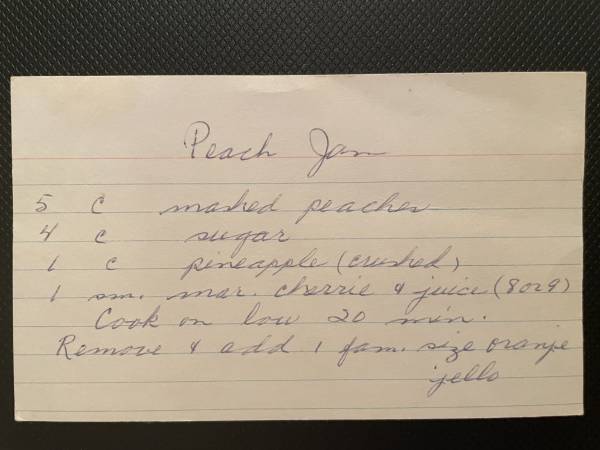 Peach Jam
5 c mashed peaches
4 c sugar
1 c pineapple (crushed)
1 sm. mar. cherrie & juice (8 oz)
Cook on low 20 min.
Remove & add 1 fam. size oranje
jello